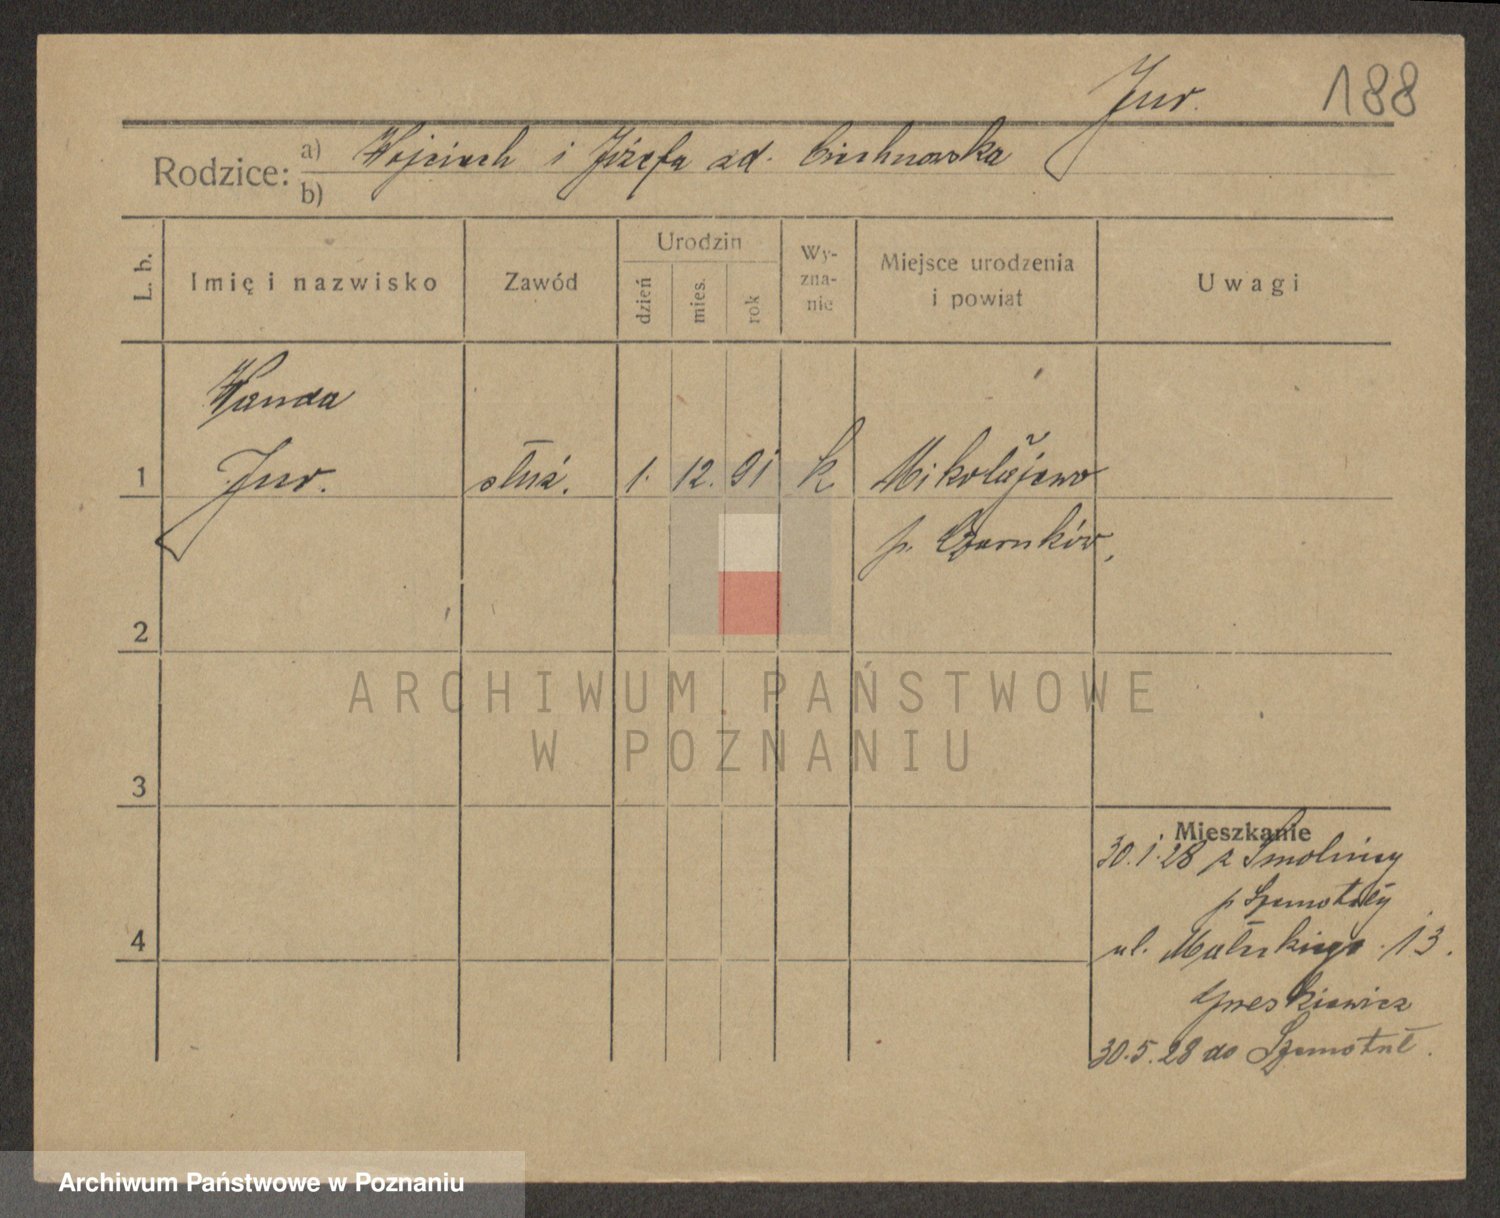 Juw. 188
Rodzice: a) Wojciech i Józefa zd. Ciechnowska
b)
L. b. Imię i nazwisko Zawód Urodzin dzień mies. rok Wy-zna-nie Miejsce urodzenia i powiat Uwagi
Wanda
1 Juw. służ. 1. 12. 91 k Mikołajewo
p. Czarnków,
2
ARCHIWUM PAŃSTWOWE
W POZNANIU
3
Mieszkanie
30.1.28 z
p Szamotuły
4
ul. 13.
30.5.28 do Szamotuł.
Archiwum Państwowe w Poznaniu